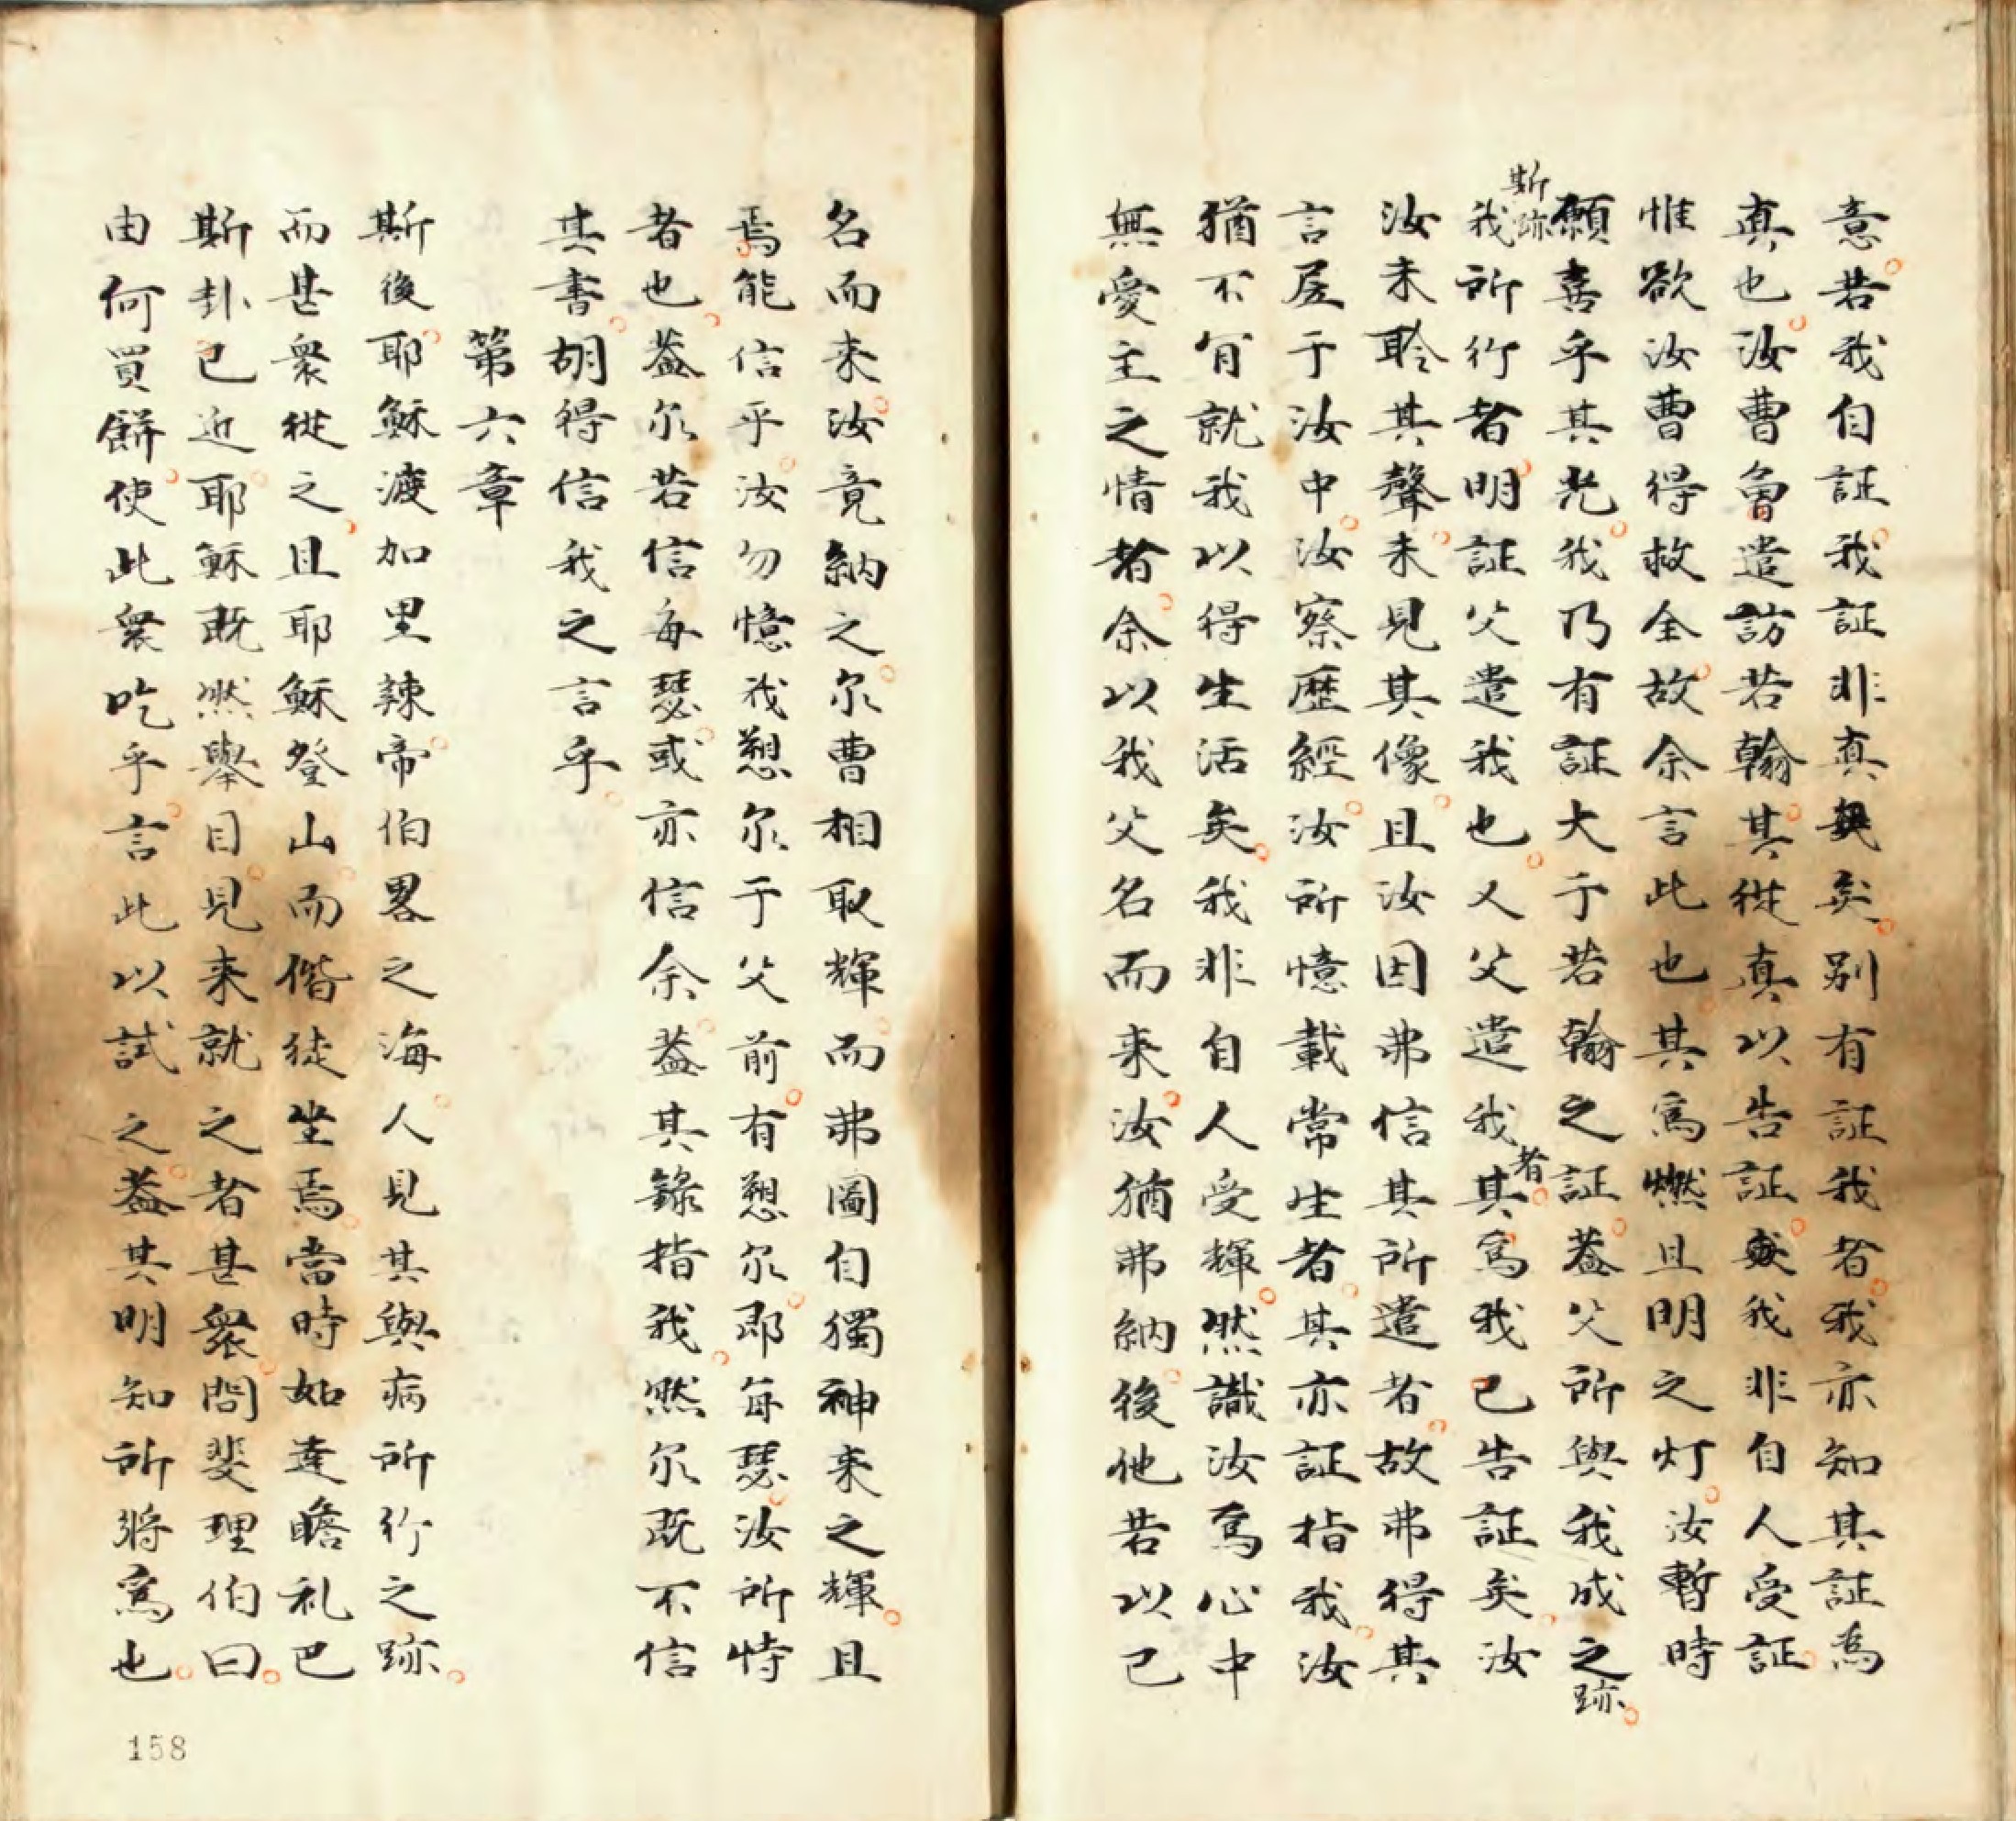 意若我自証我証非真矣別有証我者我亦知其証為
真也汝曹曾遣訪若翰其從真以告証我非自人受証
惟欲汝曹得救全故余言此也其為燃且明之灯汝暫時
願喜乎其光我乃有証大于若翰之証蓋父所與我成之跡
斯跡
我所行者明証父遣我也又父遣我者其為我已告証矣汝
汝未聆其聲未見其像且汝因弗信其所遣者故弗得其
言居于汝中汝察歷經汝所憶載常生者其亦証指我汝
猶不肯就我以得生活矣我非自人受輝然識汝為心中
無愛主之情者余以我父名而来汝猶弗納後他若以己
名而来汝竟納之尔曹相取輝而弗圖自獨神来之輝且
焉能信乎汝勿憶我愬尔于父前有愬尔即每瑟汝所恃
者也蓋尔若信每瑟或亦信余蓋其錄指我然尔既不信
其書胡得信我之言乎
第六章
斯後耶穌渡加里辣帝伯畧之海人見其與病所行之跡
而甚衆從之且耶穌登山而偕徒坐焉當時如達瞻礼巴
斯卦已近耶穌既然舉目見来就之者甚衆問斐理伯曰
由何買餅使此衆吃乎言此以試之蓋其明知所將為也
158